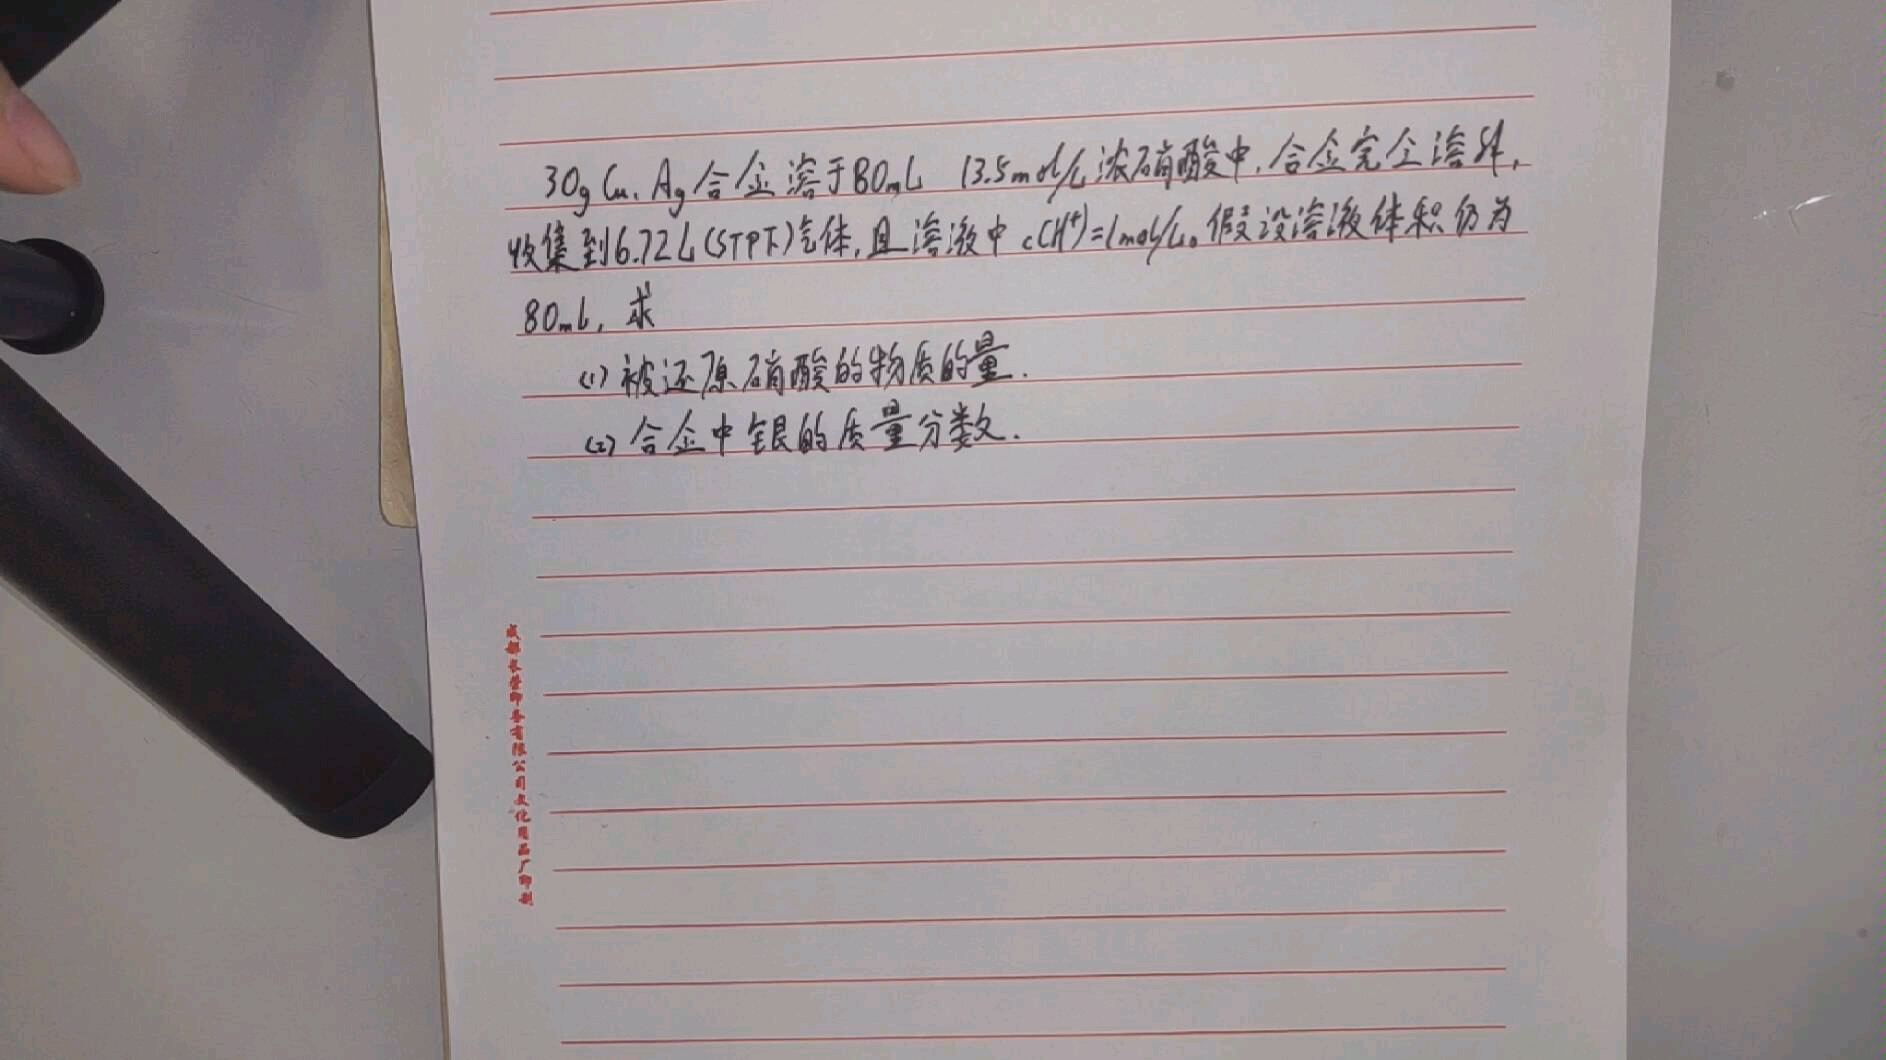 30g Cu、Ag合金溶于80mL 13.5mol/L浓硝酸中，合金完全溶解，
收集到6.72L(STP下)气体，且溶液中c(H⁺)=1mol/L。假设溶液体积仍为
80mL，求
(1) 被还原硝酸的物质的量.
(2) 合金中银的质量分数.
成都长营印务有限公司文化用品厂印制